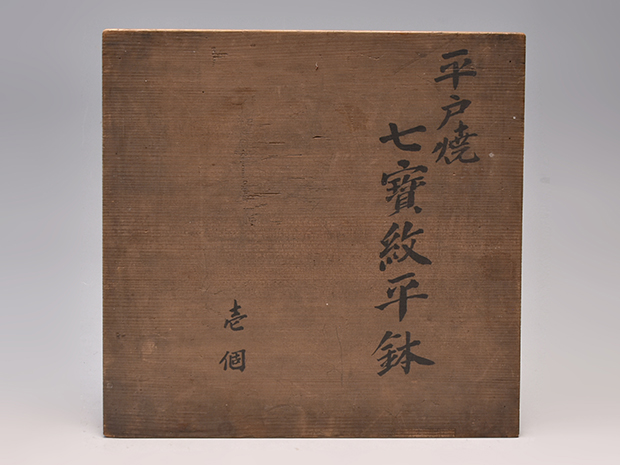 平戸焼
七寳紋平鉢
壱個